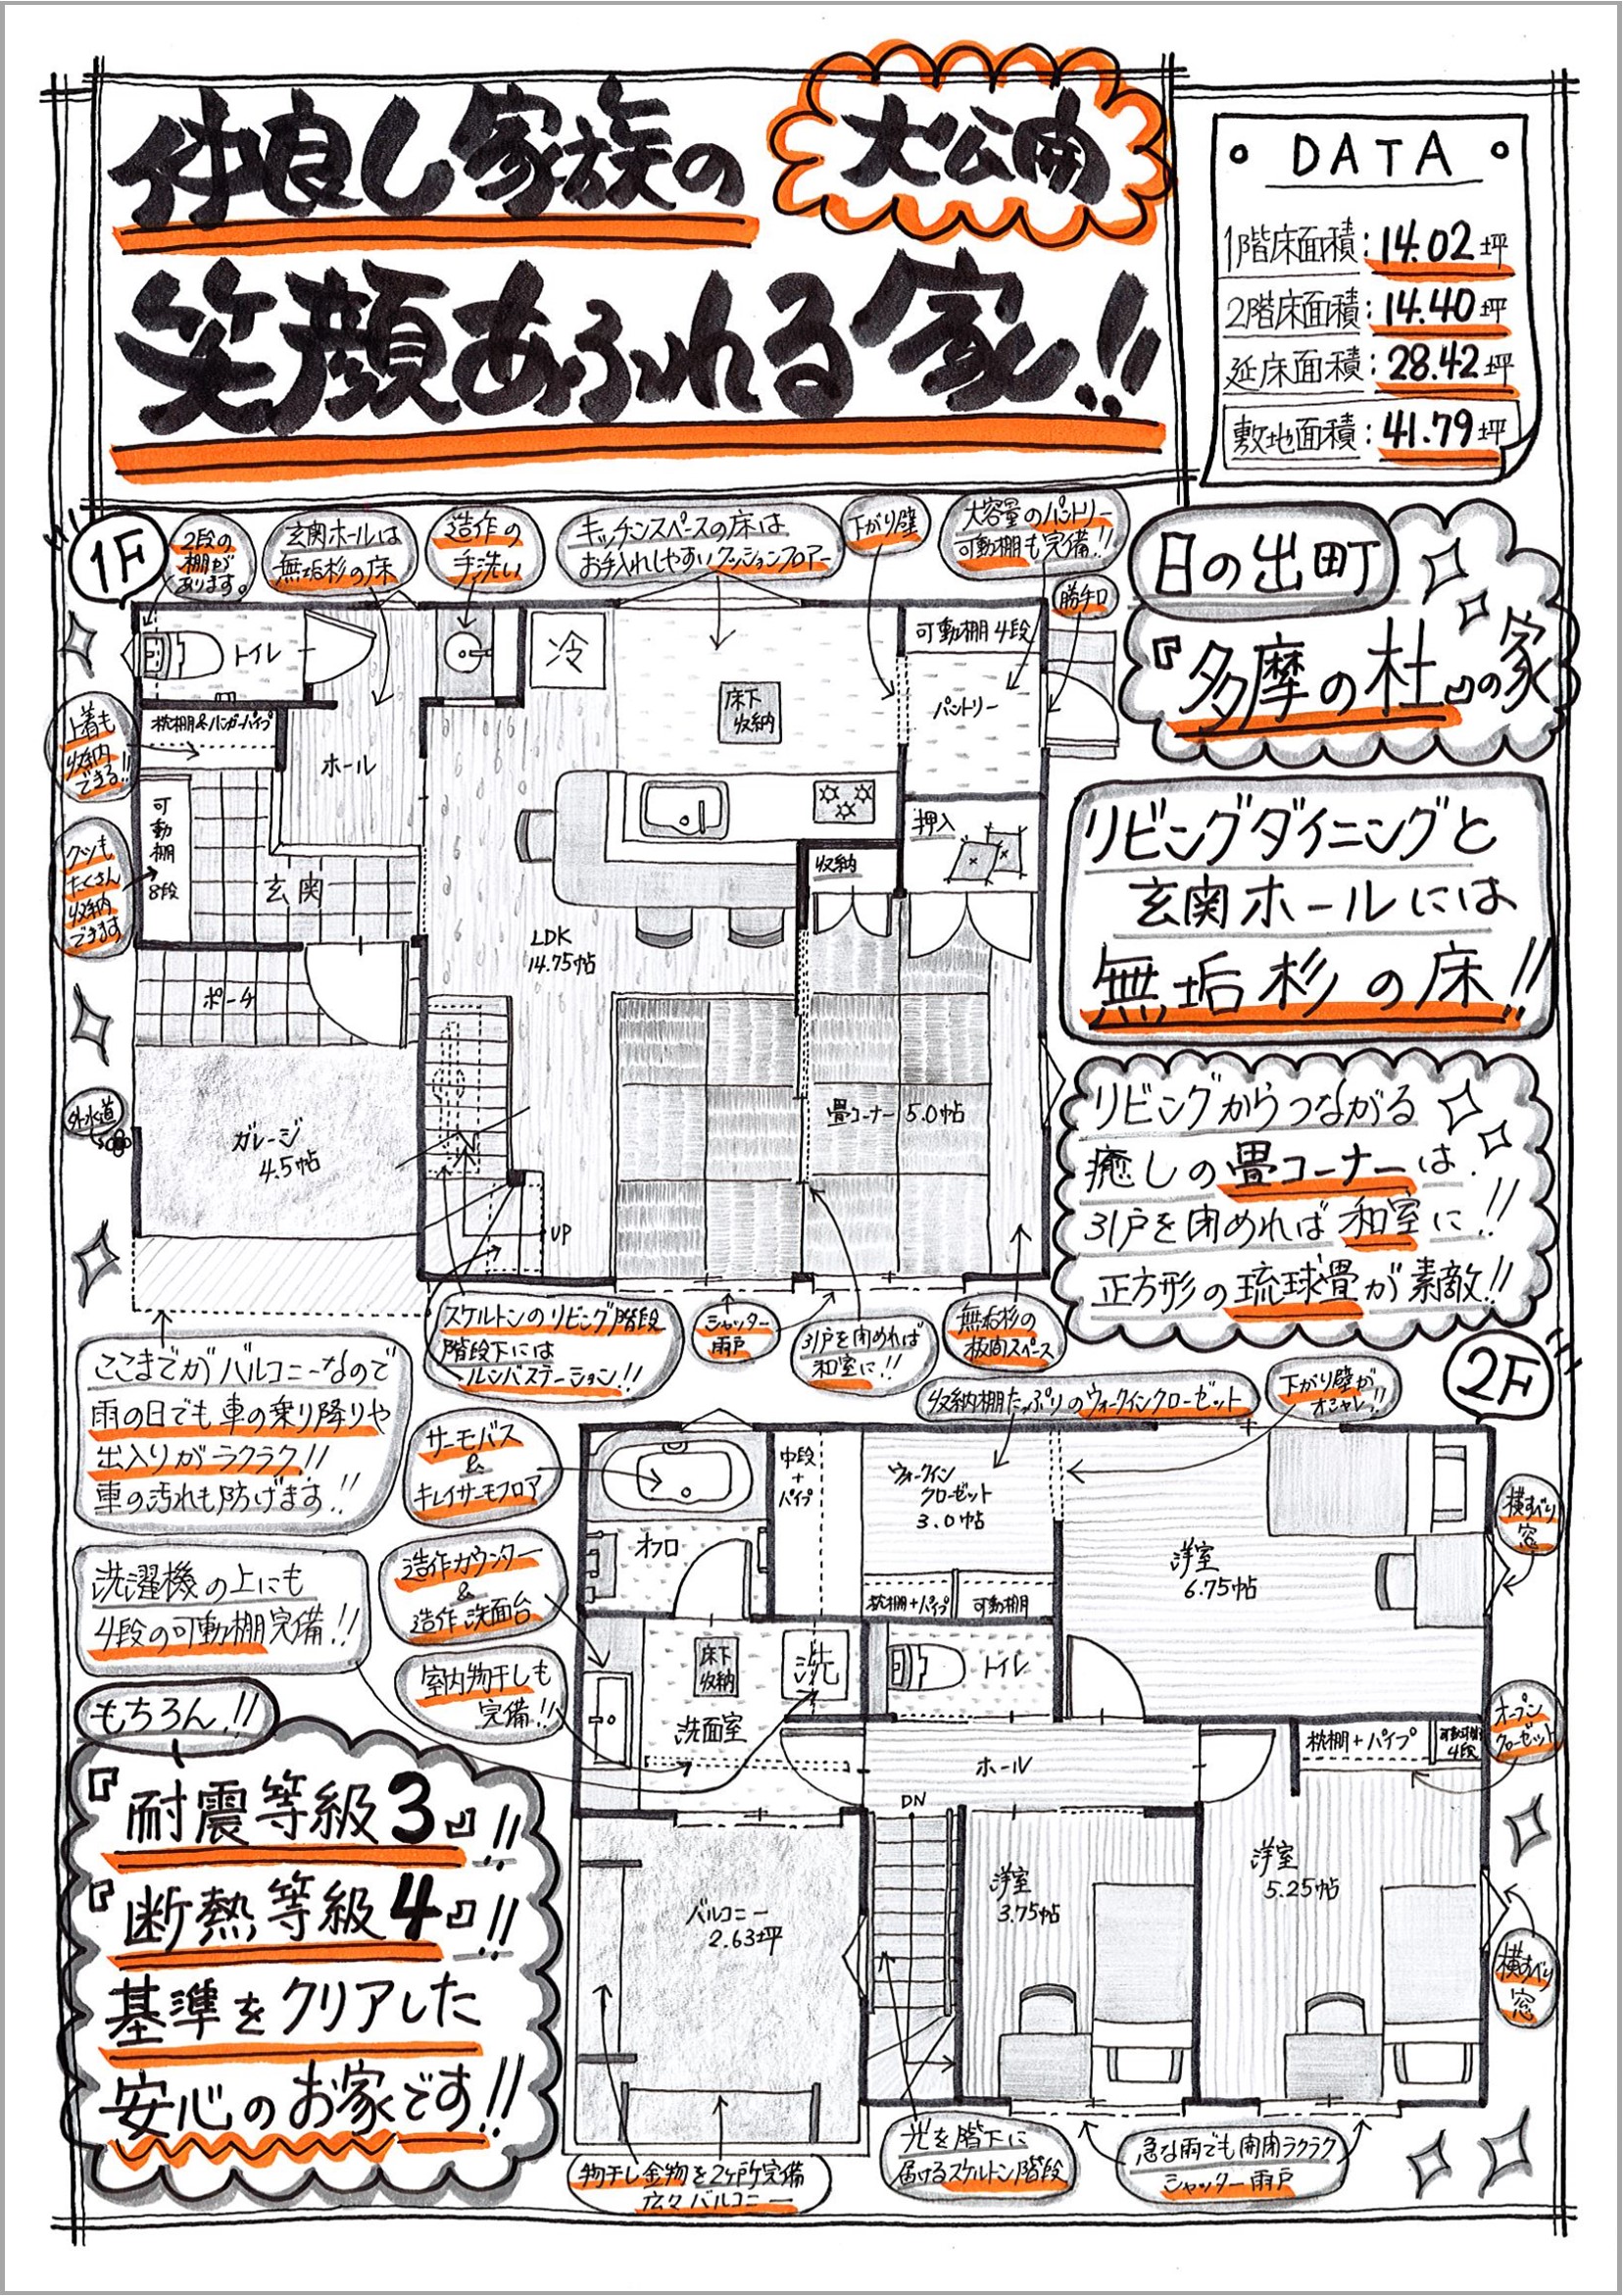 仲良し家族の
大公開
笑顔あふれる家!!
DATA
1階床面積:14.02坪
2階床面積:14.40坪
延床面積:28.42坪
敷地面積:41.79坪
日の出町
『多摩の杜』の家
リビングダイニングと
玄関ホールには
無垢杉の床!!
リビングからつながる
癒しの畳コーナーは
引戸を閉めれば和室に!!
正方形の琉球畳が素敵!!
1F
2段の
棚が
あります。
玄関ホールは
無垢杉の床
造作の
手洗い
キッチンスペースの床は
お手入れしやすいクッションフロアー
下がり壁
大容量のパントリー
可動棚も完備!!
勝手口
トイレ
冷
可動棚4段
床下
収納
パントリー
枕棚&ハンガーパイプ
上着も
収納
できる!!
ホール
可動棚
8段
クツも
たくさん
収納
できます
玄関
押入
収納
LDK
14.75帖
ポーチ
外水道
ガレージ
4.5帖
畳コーナー 5.0帖
UP
スケルトンのリビング階段
階段下には
ルンバステーション!!
シャッター
雨戸
引戸を閉めれば
和室に!!
無垢杉の
板間スペース
ここまでがバルコニーなので
雨の日でも車の乗り降りや
出入りがラクラク!!
車の汚れも防げます!!
2F
収納棚たっぷりのウォークインクローゼット
下がり壁が
オシャレ!!
サーモバス
&
キレイサーモフロア
中段
+
パイプ
ウォークイン
クローゼット
3.0帖
オフロ
洋室
6.75帖
横すべり
窓
枕棚+パイプ
可動棚
造作カウンター
&
造作洗面台
洗濯機の上にも
4段の可動棚完備!!
床下
収納
洗
トイレ
室内物干しも
完備!!
洗面室
ホール
枕棚+パイプ
可動棚
4段
オープン
クローゼット
DN
バルコニー
2.63坪
洋室
3.75帖
洋室
5.25帖
横すべり
窓
もちろん!!
『耐震等級3』!!
『断熱等級4』!!
基準をクリアした
安心のお家です!!
物干し金物を2ヶ所完備
広々バルコニー
光を階下に
届けるスケルトン階段
急な雨でも開閉ラクラク
シャッター雨戸